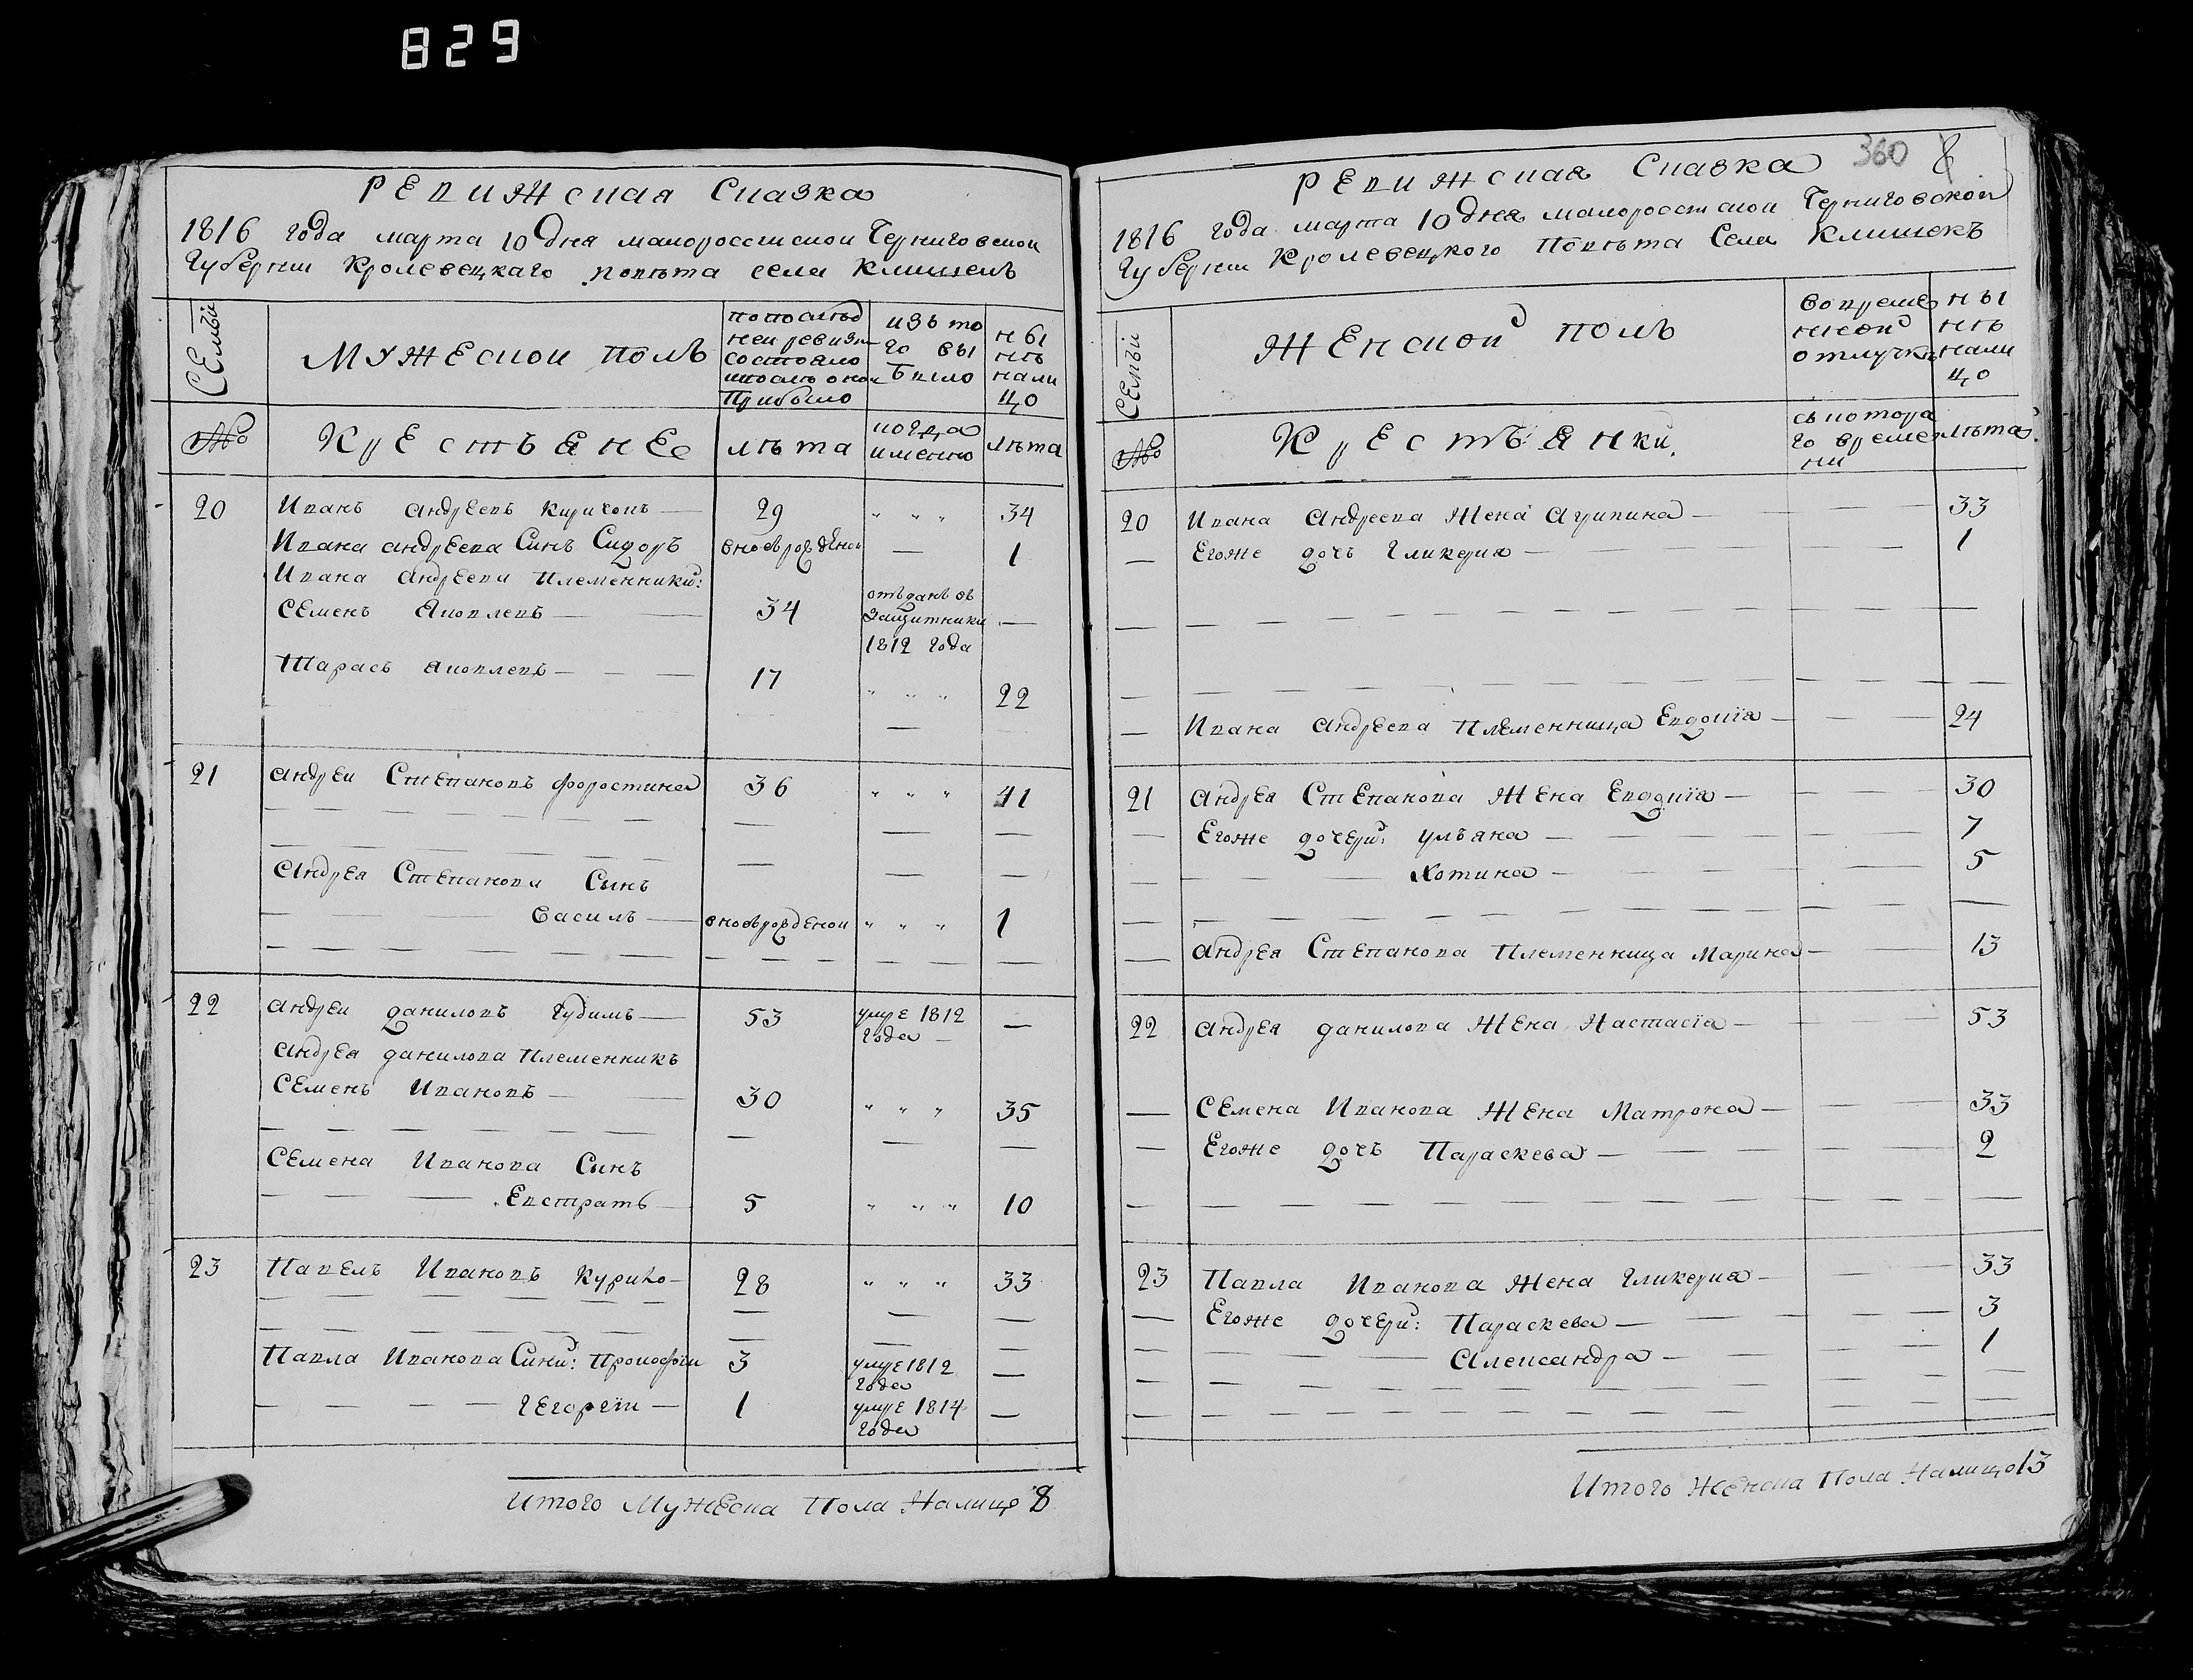 829
РЕвижская Сказка
1816 года марта 10 дня малоросстской Черниговской
Губернии Кролевецкаго повѣта села Клишекъ
СЕмьи
МУЖЕскои полъ
по послѣд
неи ревизи
состояло
и послѣ онои
Прибыло
изъ то
го вы
было
ны
нѣ
нали
цо
№
КрЕстьянЕ
лѣта
когда
именно
лѣта
20 Иванъ андрЕевъ Киричокъ 29 " " " 34
Ивана андрЕева Синъ Сидоръ вновьрождЕнои 1
Ивана андрЕева племенники:
СЕменъ Яковлевъ 34 отъданъ въ
Защитники
1812 года
Тарасъ яковлевъ 17 " " " 22
21 андреи СтЕпановъ форостина 36 " " " 41
андрЕя СтЕпанова Сынъ
Василь вновьрожденои " " " 1
22 андреи даниловъ Гудимъ 53 умрЕ 1812
года
андрЕя данилова племенникъ
СЕменъ Ивановъ 30 " " " 35
СЕмена Иванова Сынъ
Евстратъ 5 " " " 10
23 ПавЕлъ Ивановъ Курило 28 " " " 33
Павла Иванова Сини: Прокофіи 3 умрЕ 1812
года
ГЕоргіи 1 умрЕ 1814
года
Итого МужЕска Пола Налицо 8
360 8
РЕвижская Сказка
1816 года марта 10 дня малоросстской Черниговской
Губернии Кролевецкого Повѣта Села Клишекъ
СЕмьи
ЖЕнской полъ
во време
нной
отлучки
ны
нѣ
нали
цо
№
КрЕстьЯнки.
съ котора
го време
ни
лѣта
20 Ивана андреева Жена агрипина 33
Егоже дочь Гликерия 1
Ивана андрЕева племенница Евдокія 24
21 андрЕя СтЕпанова ЖЕна Евдокія 30
Егоже дочери: ульяна 7
Хотина 5
андрЕя СтЕпанова племенница Марина 13
22 андрЕя данилова ЖЕна Настасія 53
СЕмена Иванова ЖЕна Матрона 33
Егоже дочь Параскева 2
23 Павла Иванова Жена Гликерия 33
Егоже дочери: Параскева 3
александра 1
Итого ЖЕнска Пола Налицо 13